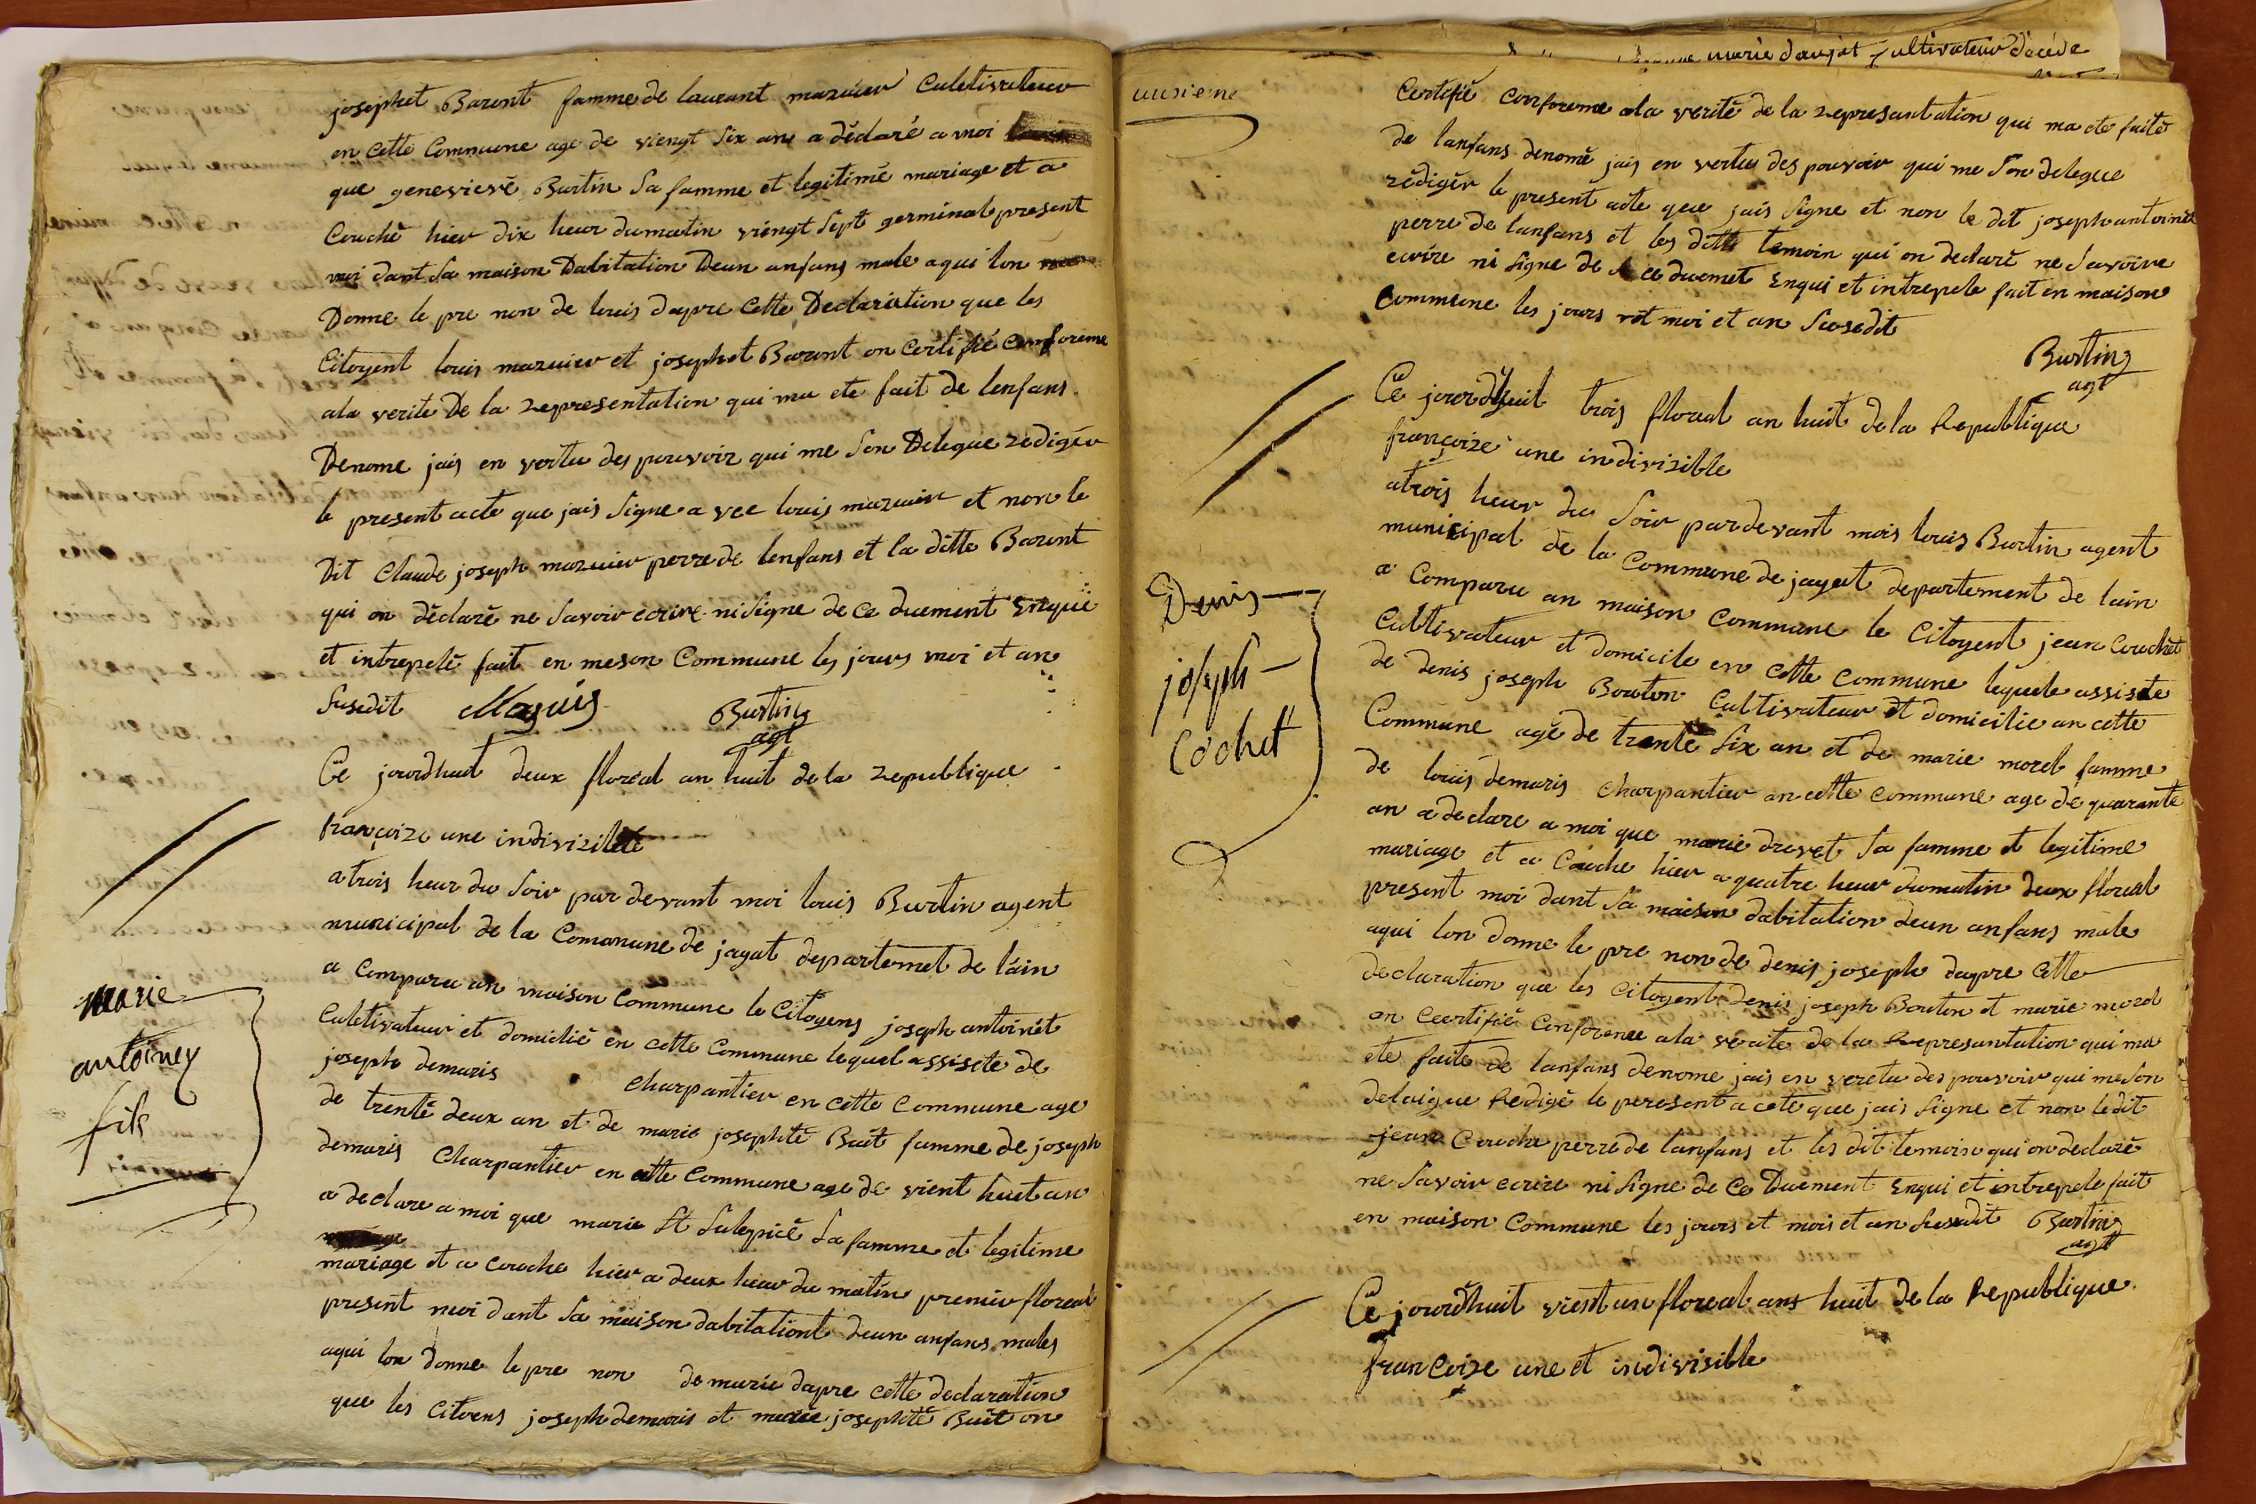 josephet Barent famme de laurant mazuier Culetivateur
en cette Commune age de viengt six ans a dèclaré a moi
que genevievè Burtin sa famme et legitimè mariage et a
Couchè hier dix heur dumatin viengt sept germinal present
moi dant sa maison Dabitation Deun anfans male aqui lon
Donne le pre non de louis dapre cette Declariation que les
Citoyent louis mazuier et josephet Barent on certifié conforeme
ala verite De la representation qui ma ete fait de lenfans
Denome jais en vertu des pouvoir qui me son Delegue redigér
le present acte que jais signe a vec louis mazuier et non le
Dit Claude joseph mazuier perre de lenfans et la ditte Barent
qui on dèclarè ne savoir ecrire ni signe de ce duement Enquë
et intrepelè fait en meson Commune les jours moi et an
susedit Mazuis Burtin
agt
Ce jourdhuit deux floreal an huit de la republique
françoize une indivizible
a trois heur du soir par devant moi louis Burtin agent
municipal de la Comanune de jayat departemet de lain
a comparu an maison Commune le Citoyens joseph antoinet
Culetivateur et domicilié en cette Commune lequel assisete de
joseph demaris charpantier en cette Commune age
de trentè deux an et de marie josephtè Buit famme de joseph
demaris Charpantier en cette Commune age de vient huit an
a declare a moi que marie St Sulepicè sa famme et legitime
mariage et a couche hier a deux heur du matin premier floreal
present moi dant sa maison dabitationt deun anfans males
aqui lon donne le pre non de marie dapre cette declaration
que les Citoens joseph demaris et marie josephtè Buit on
marie
antoiney
fils
unsieme
marie daujat Cultivateur dècéde
Certifié conforeme ala veritè de la represantation qui ma ete faitè
de lanfans denomè jais en vertu des pouvoir qui me son delegue
rèdigér le present acte que jais signe et non le dit joseph antoinet
perre de lanfans et les dette temoin qui on declarè ne savoire
ecrire ni signe de ce duemet Enqui et intrepele fait en maison
Commune les jours et moi et an susedit
Burtin
agt
Ce jourdhuit trois floreal an huit de la Republique
françoize une indivizible
atrois heur du soir pardevant mois louis Burtin agent
municipal de la Commune de jayat departement de lain
a Comparu an maison Commune le Citoyent jean Couchet
Cultivateur et domicile en cette Commune lequele assiste
de denis joseph Bouton Cultivateur et domicilie an cette
Commune agè de trente six an et de marie morel famme
de louis demaris Charpantier an cette Commune age de quarante
an a declare a moi que marie drevet sa famme et legitime
mariage et a Couche hier a quatre heur dumatin deux floreal
present moi dant sa maison dabitation deun anfans male
aqui lon donne le pre non de denis joseph dapre cette
declaration que les Citoyent denis joseph Bouton et marie morel
on Ceertifié Conforeme ala verite de la Represantation qui ma
ete faite de lanfans denome jais en veretu des pouvoir qui me son
delaigue Redigè le peresent a cete que jais signe et non ledit
jean Couche perre de lanfans et les dit temoin qui on declarè
ne savoir ecrire ni signe de ce Duement Enqui et intrepele fait
en maison Commune les jours et mois et an susedit Burtin
agt
Denis
joseph
Cochet
Ce jourdhuit vient un floreal ans huit de la Republique
françoize une et indivisible